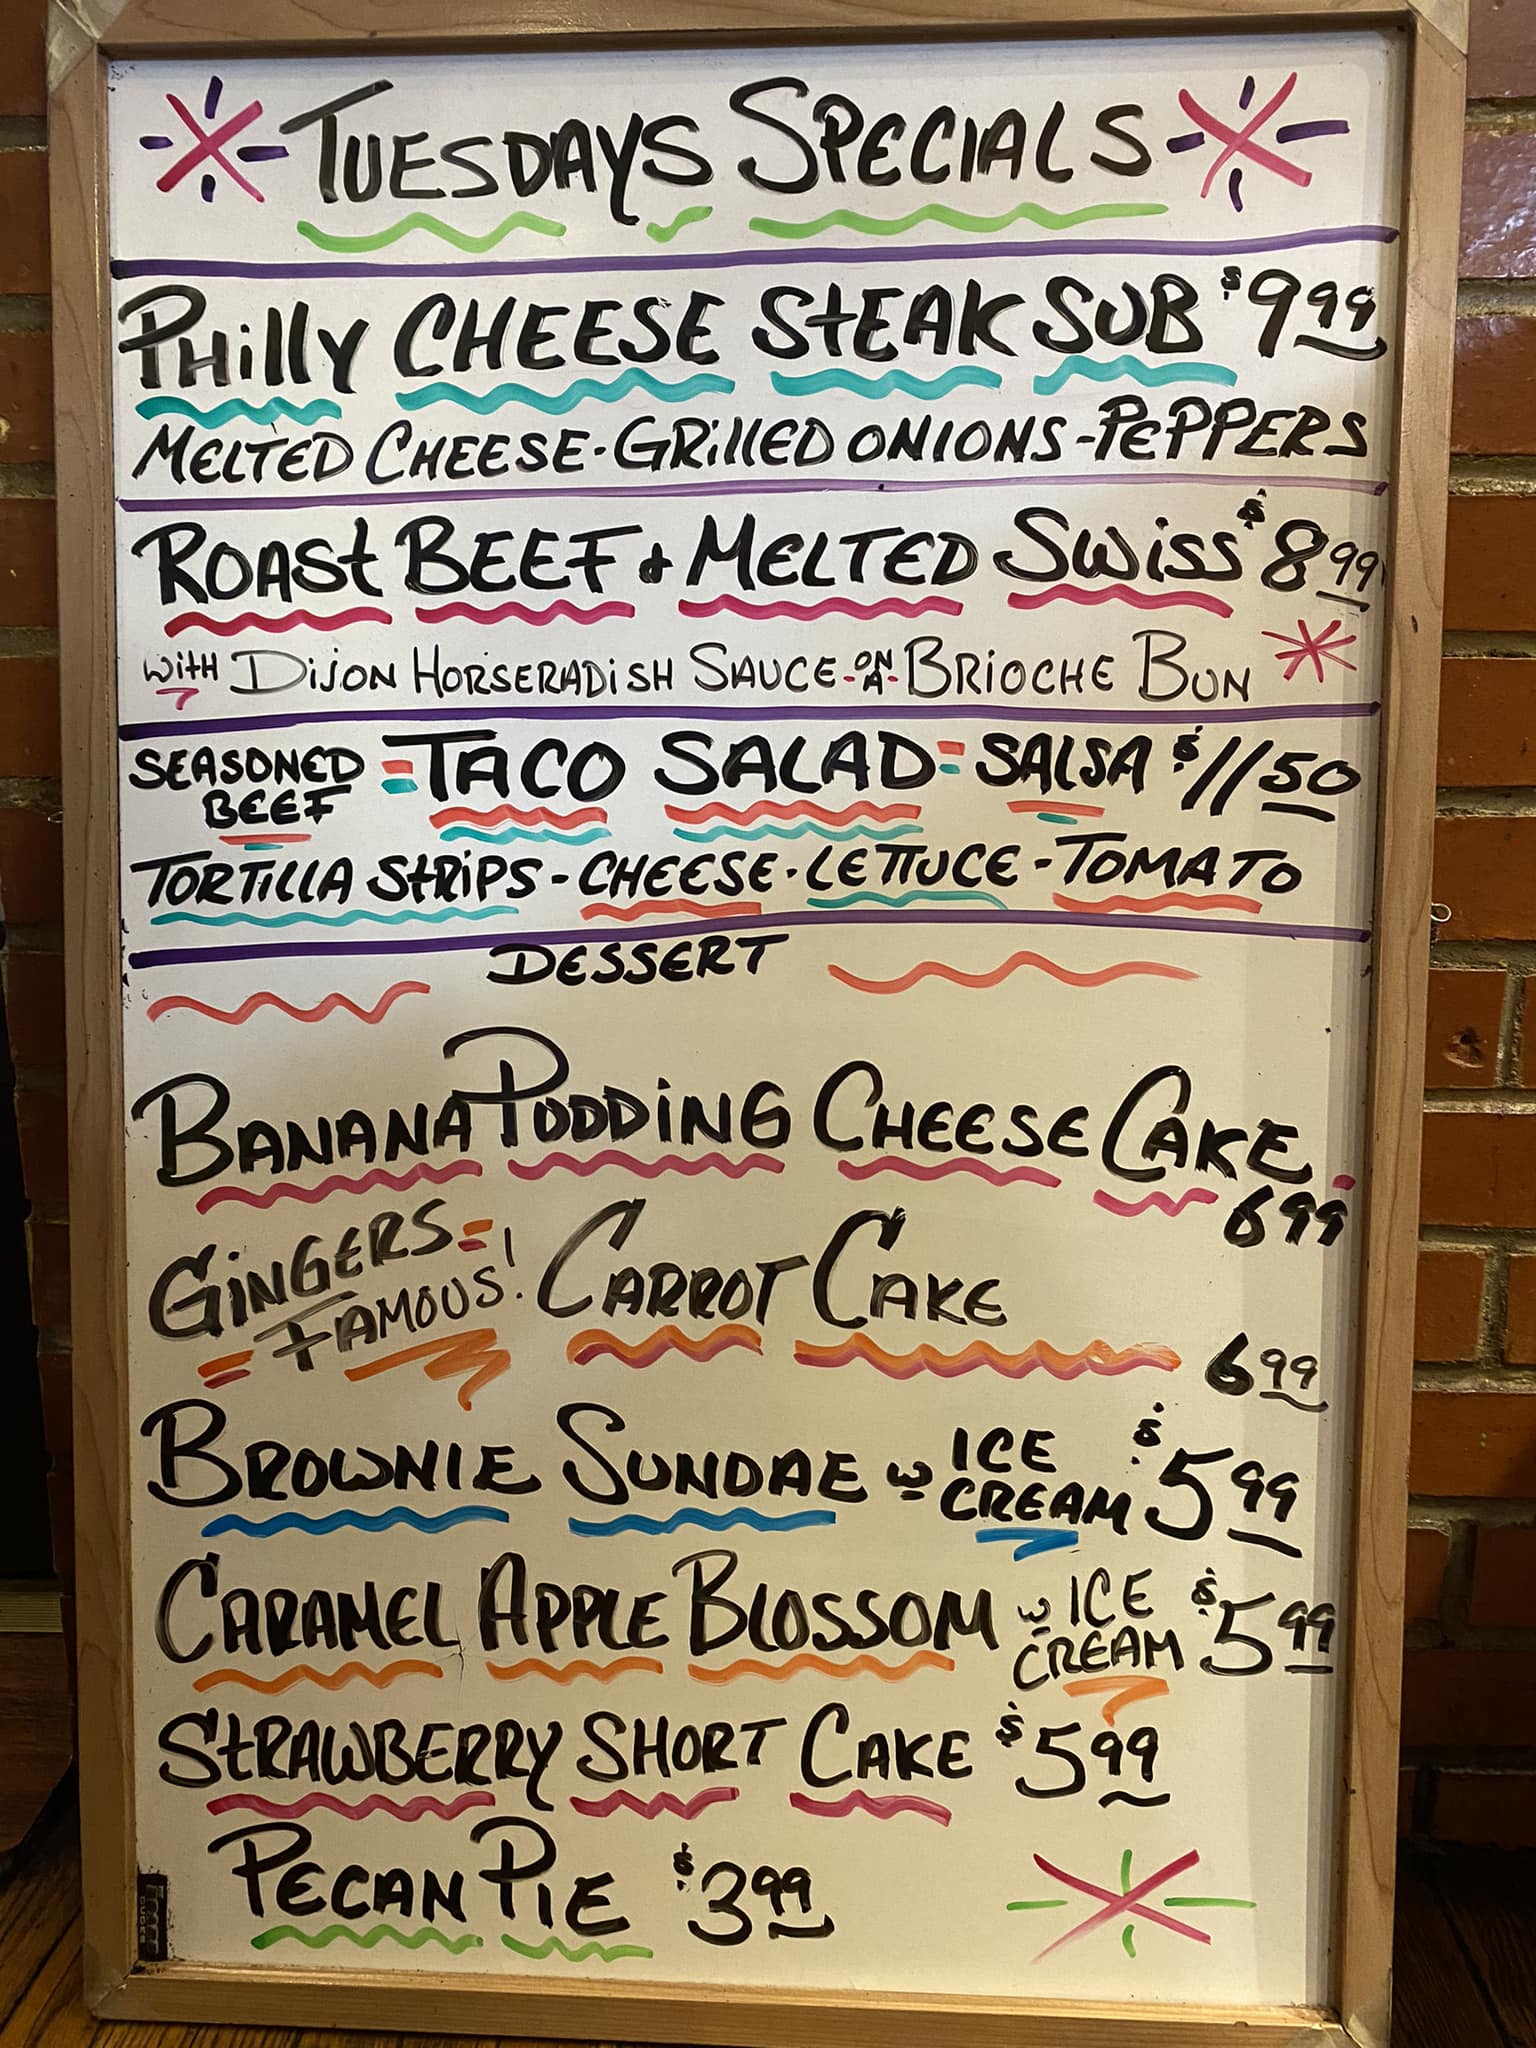 TUESDAYS SPECIALS
PHilly CHEESE STEAK SUB $9.99
MELTED CHEESE - GRillED ONIONS - PEPPERS
ROAST BEEF & MELTED SWiSS $8.99
WiTH DiJON HORSERADiSH SAUCE - ON A - BRIOCHE BUN
SEASONED BEEF = TACO SALAD = SALSA $11.50
TORTILLA STRiPS - CHEESE - LETTUCE - TOMATO
DESSERT
BANANA PUDDiNG CHEESE CAKE 6.99
GiNGERS FAMOUS! CARROT CAKE 6.99
BROWNIE SUNDAE W ICE CREAM $5.99
CARAMEL APPLE BLOSSOM W ICE CREAM $5.99
STRAWBERRY SHORT CAKE $5.99
PECAN PIE $3.99